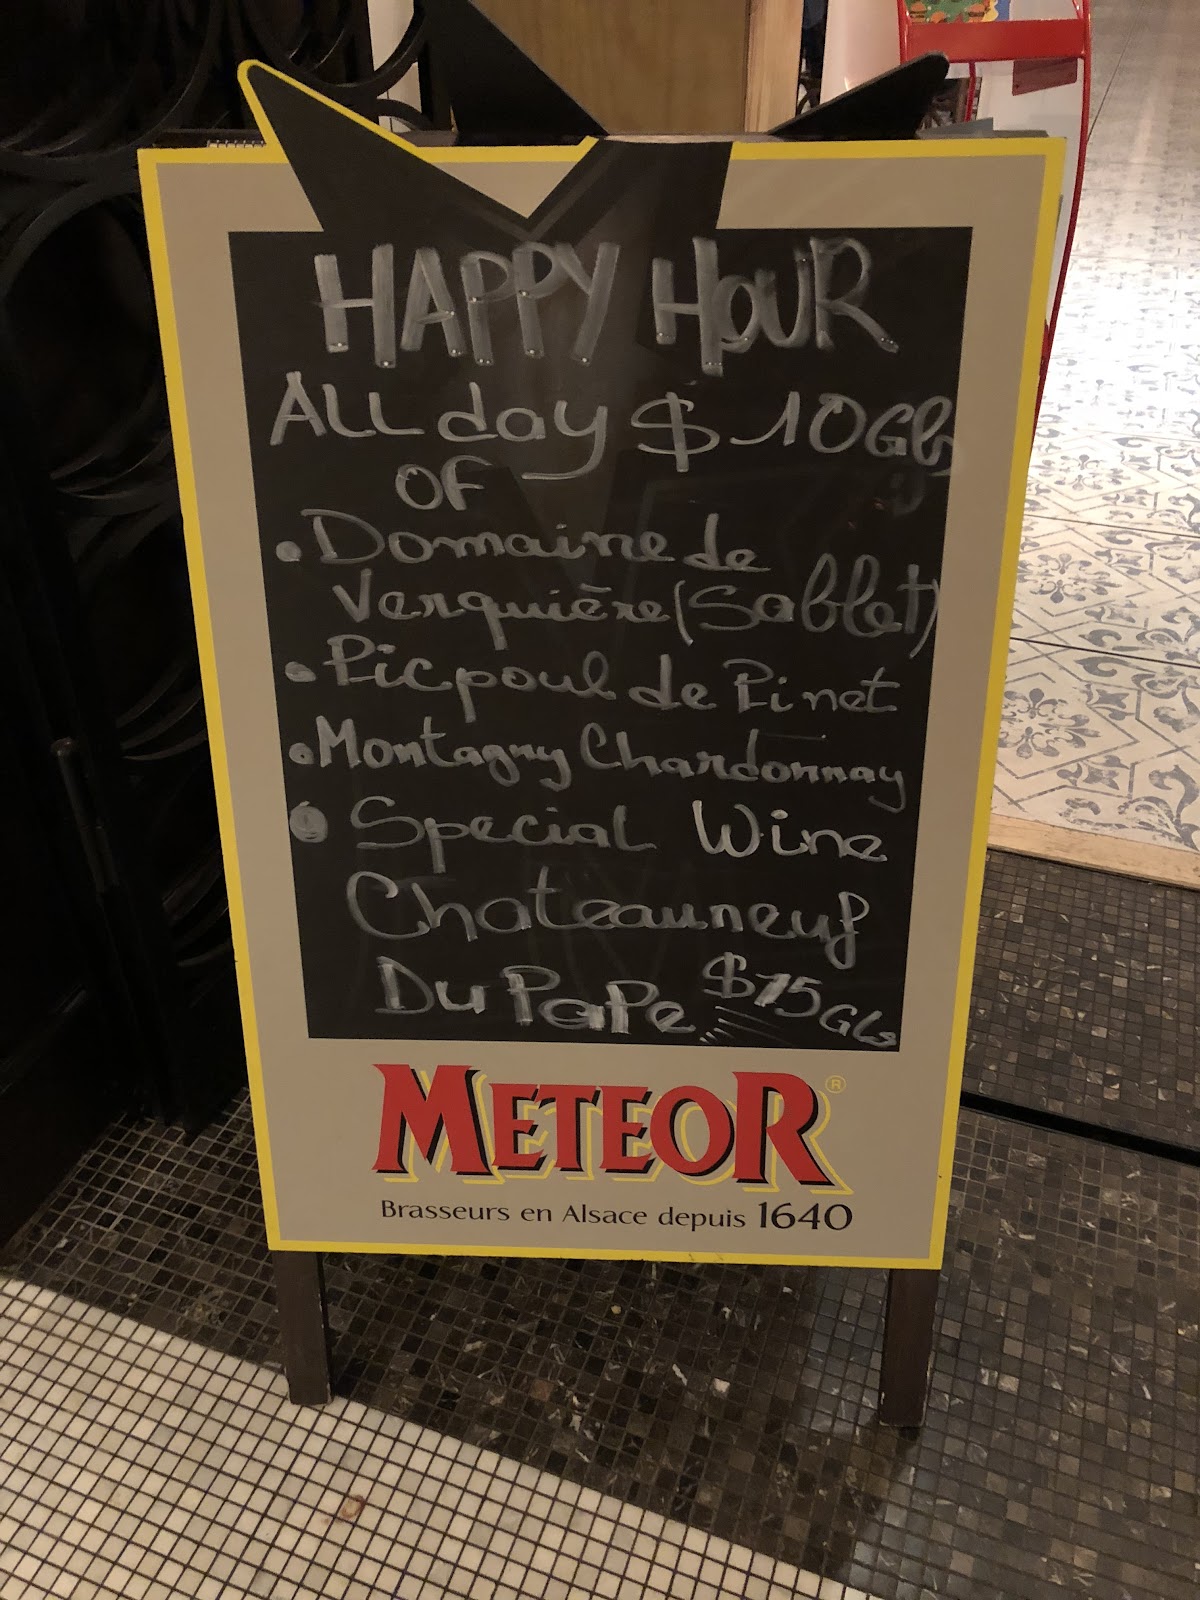 HAPPY HOUR
ALL day $10 Gls
OF
• Domaine de
Verquière (Sablet)
• Picpoul de Pinet
• Montagny Chardonnay
• Special Wine
Chateauneuf
Du PaPe $15 Gls
METEOR®
Brasseurs en Alsace depuis 1640